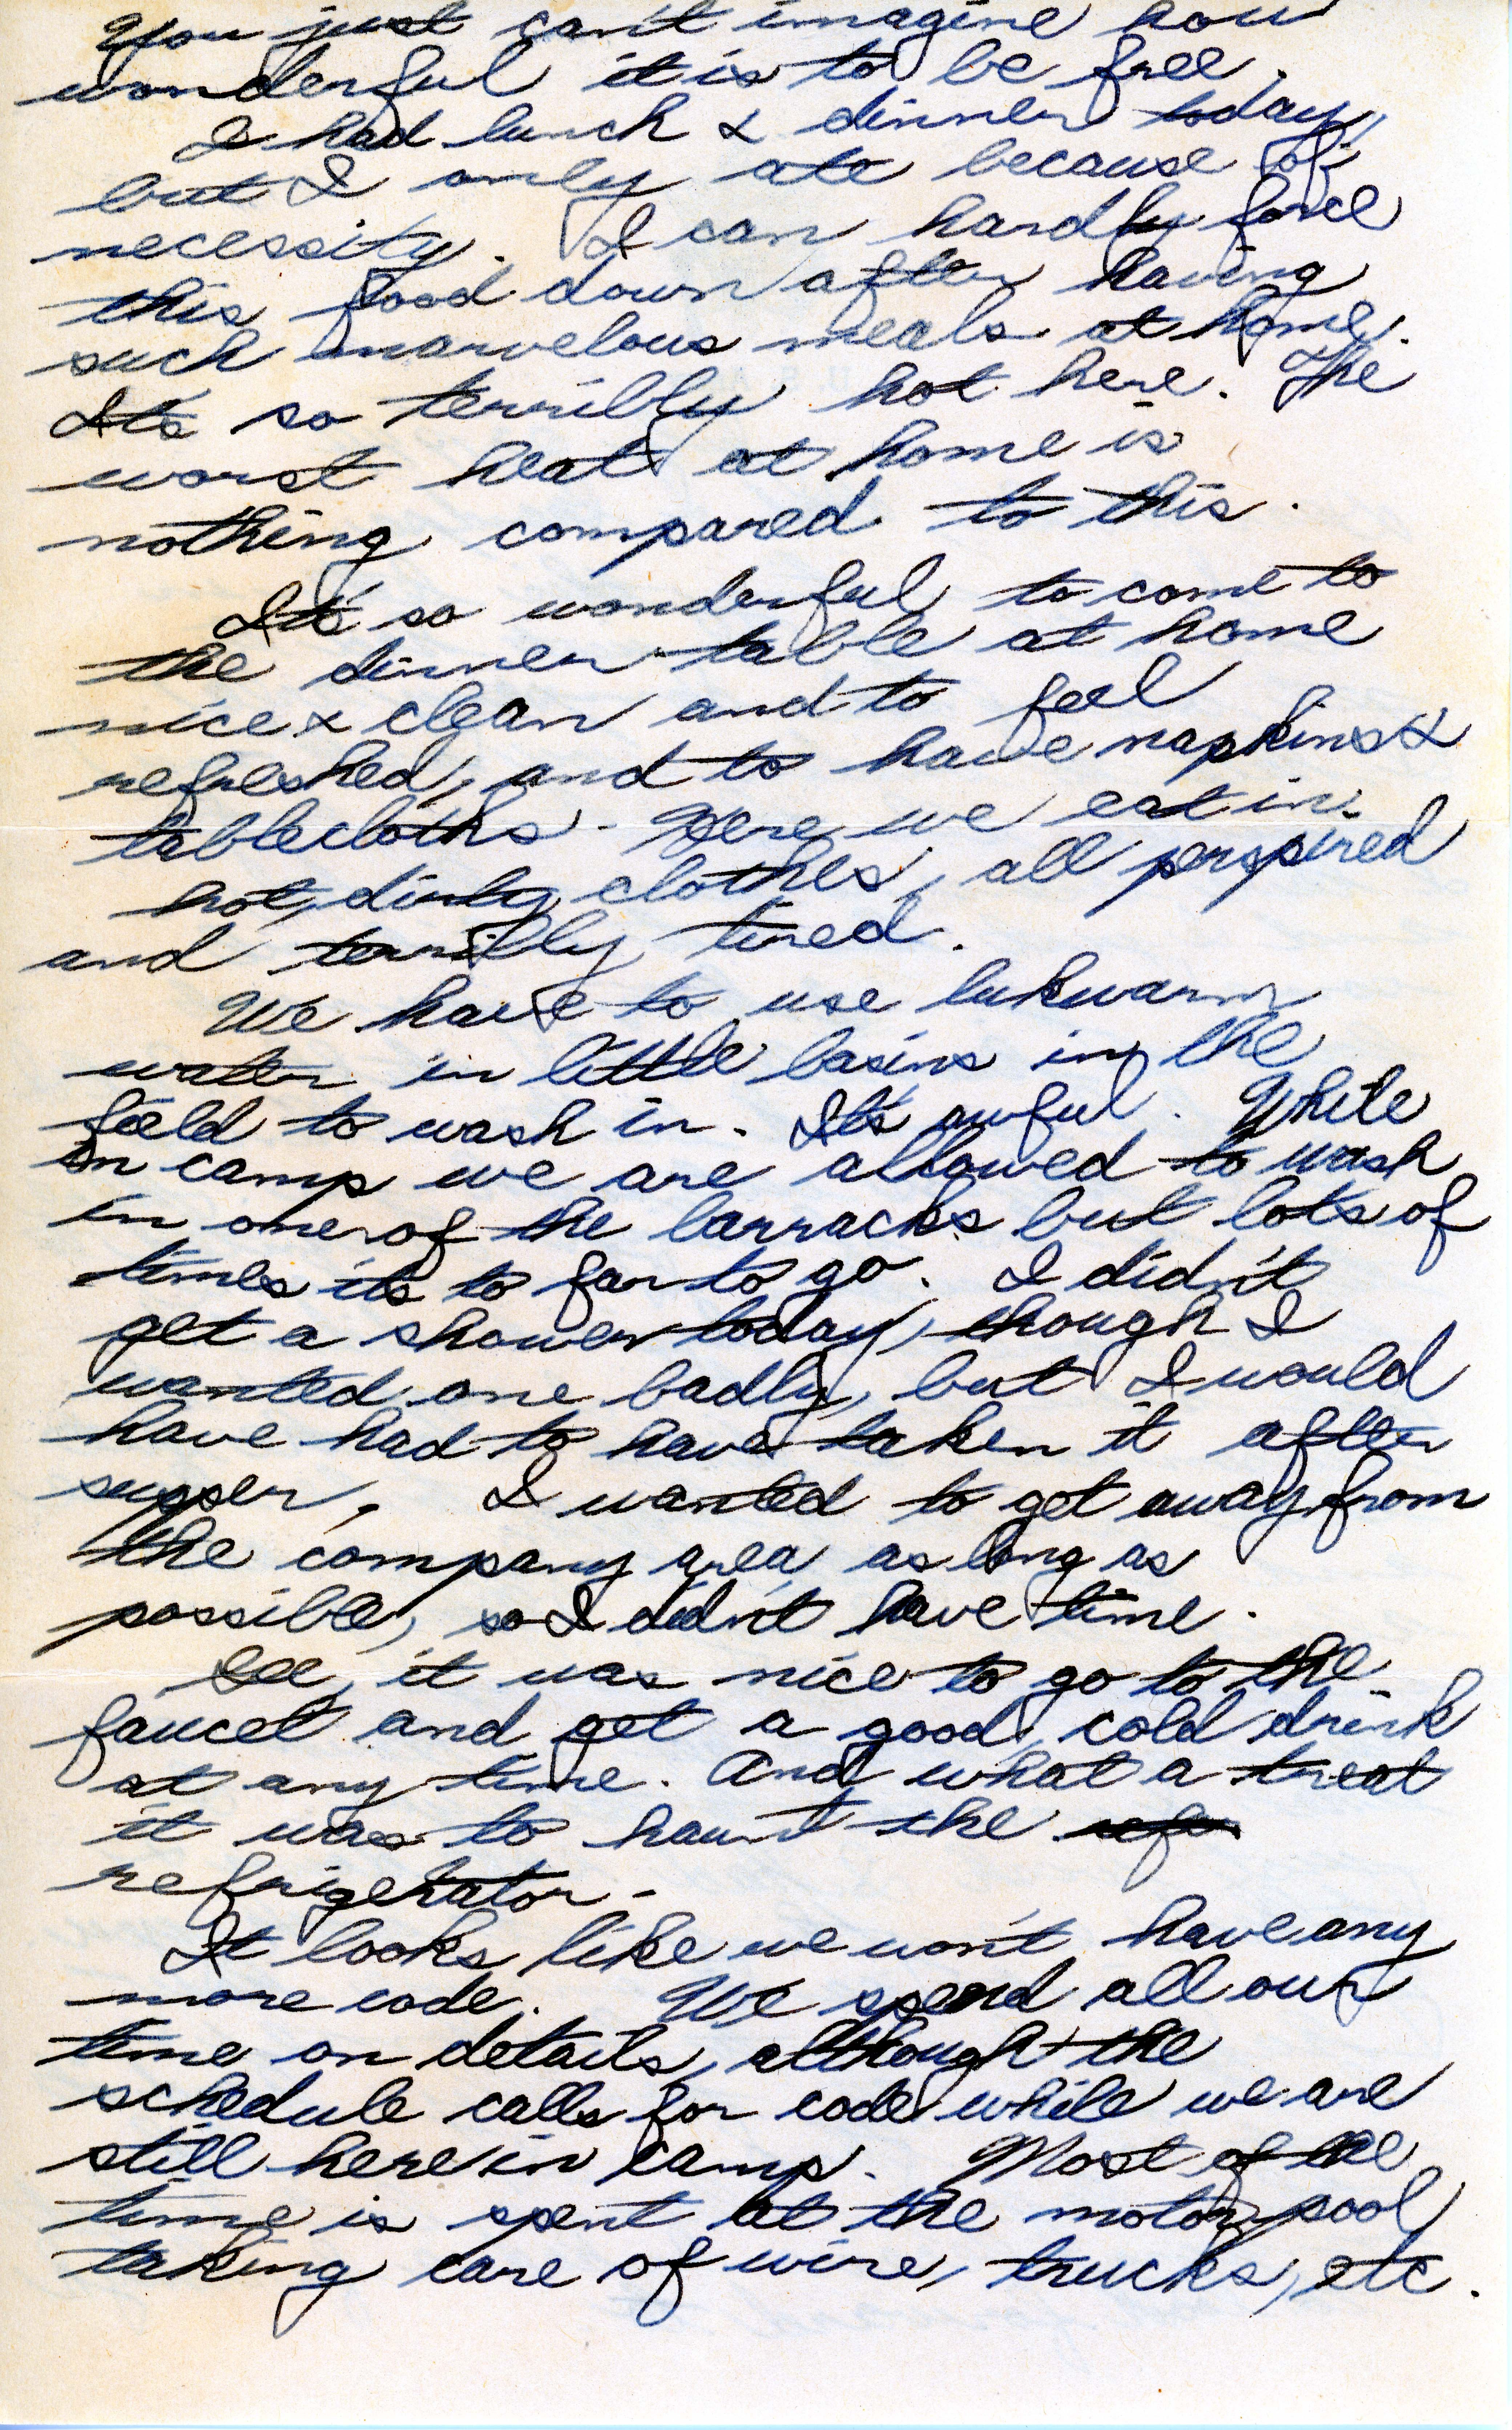 You just can't imagine how
wonderful it is to be free.
I had lunch & dinner today,
but I only ate because of
necessity. I can hardly force
this food down after having
such marvelous meals at home.
It's so terribly hot here. The
worst heat at home is
nothing compared to this.
It's so wonderful to come to
the dinner table at home
nice & clean and to feel
refreshed, and to have napkins &
tablecloths. Here we eat in
hot, dirty clothes, all perspired
and terribly tired.
We have to use lukwarm
water in little basins in the
field to wash in. It's awful. While
in camp we are allowed to wash
in one of the barracks but lots of
times its to far to go. I didn't
get a shower today, though I
wanted one badly, but I would
have had to have taken it after
supper. I wanted to get away from
the company area as long as
possible, so I didn't have time.
Gee, it was nice to go to the
faucet and get a good, cold drink
at any time. And what a treat
it was to haunt the refr
refrigerator.
It looks like we won't have any
more code. We spend all our
time on details, although the
schedule calls for code while we are
still here in camp. Most of the
time is spent at the motor pool
taking care of wire, trucks, etc.